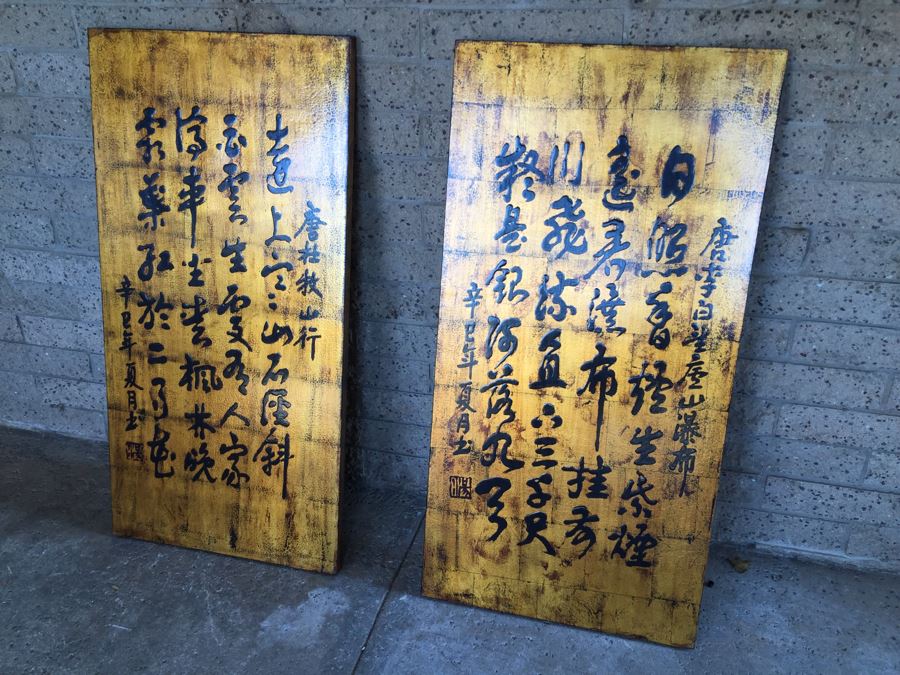 唐李白望庐山瀑布
日照香爐生紫煙
遙看瀑布挂前
川飛流直下三千尺
疑是銀河落九天
辛巳年夏月书
唐杜牧山行
遠上寒山石徑斜
白雲生處有人家
停車坐愛楓林晚
霜葉紅於二月花
辛巳年夏月书